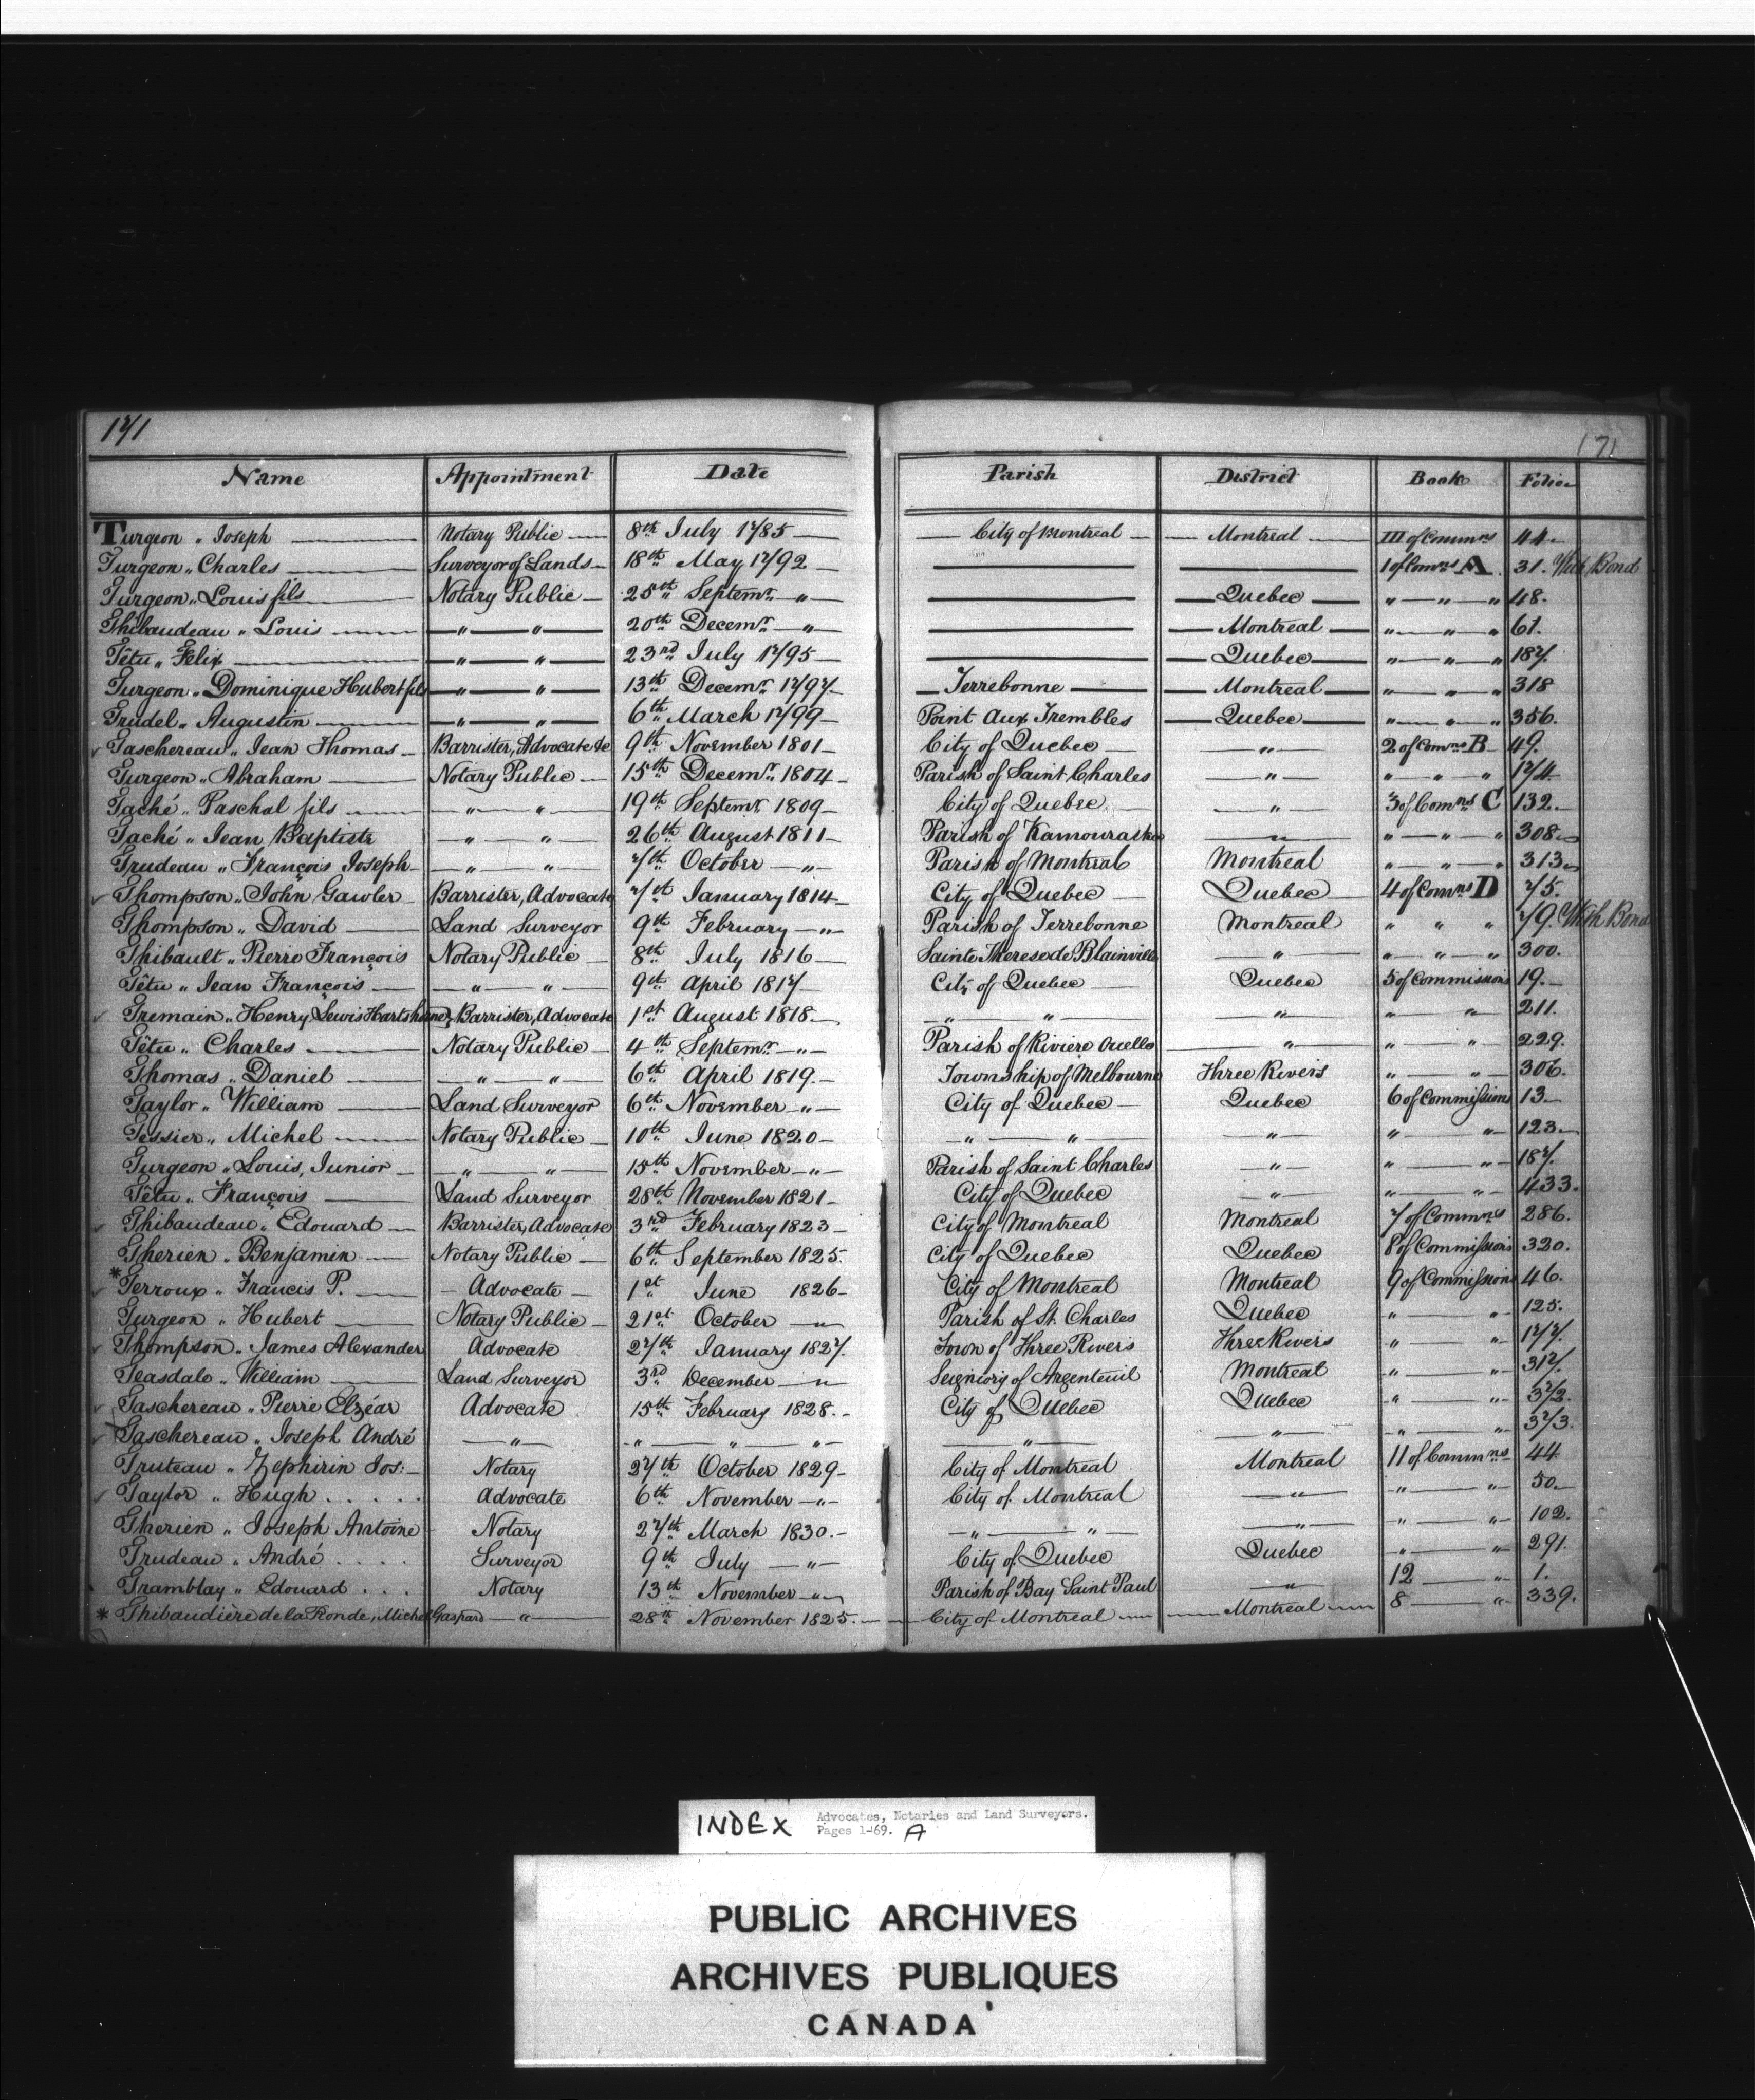 171
171
Name Appointment Date Parish District Book Folio
Turgeon „ Joseph Notary Public 8th July 1785 City of Montreal Montreal III of Commns 44.
Turgeon „ Charles Surveyor of Lands 18th May 1792 1 of Comns A. 31. With Bond
Turgeon „ Louis fils Notary Public 25th Septemr „ Quebec „ „ „ 48.
Thibaudeau „ Louis „ „ 20th Decemr „ Montreal „ „ „ 61.
Têtu „ Felix „ „ 23rd July 1795 Quebec „ „ „ 187.
Turgeon „ Dominique Hubert fils „ „ 13th Decemr 1797 Terrebonne Montreal „ „ „ 318
Trudel „ Augustin „ „ 6th March 1799 Point aux Trembles Quebec „ „ „ 356.
Taschereau „ Jean Thomas Barrister, Advocate &c 9th November 1801 City of Quebec „ 2 of Comns B 49.
Turgeon „ Abraham Notary Public 15th Decemr 1804 Parish of Saint Charles „ „ „ „ 174
Taché „ Paschal fils „ „ 19th Septemr 1809 City of Quebec „ 3 of Comns C 132.
Taché „ Jean Baptiste „ „ 26th August 1811 Parish of Kamouraska „ „ „ „ 308
Trudeau „ François Joseph „ „ 7th October „ Parish of Montreal Montreal „ „ „ 313
Thompson „ John Gawler Barrister, Advocate 7th January 1814 City of Quebec Quebec 4 of Comns D 75.
Thompson „ David Land Surveyor 9th February „ Parish of Terrebonne Montreal „ „ „ 79. With Bond
Thibault „ Pierre François Notary Public 8th July 1816 Sainte Therese de Blainville „ „ „ „ 300.
Têtu „ Jean François „ „ 9th April 1817 City of Quebec Quebec 5 of Commissions 19.
Tremain „ Henry Lewis Hartshorne} Barrister, Advocate 1st August 1818. „ „ „ „ „ 211.
Têtu „ Charles Notary Public 4th Septemr „ Parish of Riviere Ouelle „ „ „ 229.
Thomas „ Daniel „ „ 6th April 1819. Township of Melbourne Three Rivers „ „ 306.
Taylor „ William Land Surveyor 6th November „ City of Quebec Quebec 6 of Commissions 13.
Tessier „ Michel Notary Public 10th June 1820 „ „ „ „ „ 123.
Turgeon „ Louis, Junior „ „ 15th November „ Parish of Saint Charles „ „ „ 187.
Têtu „ François Land Surveyor 28th November 1821 City of Quebec „ „ „ 433.
Thibaudeau „ Edouard Barrister, Advocate 3rd February 1823 City of Montreal Montreal 7 of Commns 286.
Therien „ Benjamin Notary Public 6th September 1825. City of Quebec Quebec 8 of Commissions 320.
* Terroux „ Francis P. Advocate 1st June 1826 City of Montreal Montreal 9 of Commissions 46.
Turgeon „ Hubert Notary Public 21st October „ Parish of St. Charles Quebec „ „ 125.
Thompson „ James Alexander Advocate 27th January 1827. Town of Three Rivers Three Rivers „ „ 177.
Teasdale „ William Land Surveyor 3rd December „ Seigniory of Argenteuil Montreal „ „ 317.
Taschereau „ Pierre Elzéar Advocate 15th February 1828. City of Quebec Quebec „ „ 372.
Taschereau „ Joseph André „ „ „ „ „ „ „ „ 373.
Truteau „ Zephirin Jos: Notary 27th October 1829 City of Montreal Montreal 11 of Commns 44
Taylor „ Hugh . . . . . Advocate 6th November „ City of Montreal „ „ „ 50.
Therien „ Joseph Antoine Notary 27th March 1830. „ „ „ „ „ 102.
Trudeau „ André . . . . Surveyor 9th July „ City of Quebec Quebec „ „ 291.
Tramblay „ Edouard . . . Notary 13th November „ Parish of Bay Saint Paul „ 12 „ 1.
* Thibaudière de la Ronde, Michel Gaspard „ 28th November 1825. City of Montreal Montreal 8 „ 339.
INDEX Advocates, Notaries and Land Surveyors.
Pages 1-69. A
PUBLIC ARCHIVES
ARCHIVES PUBLIQUES
CANADA